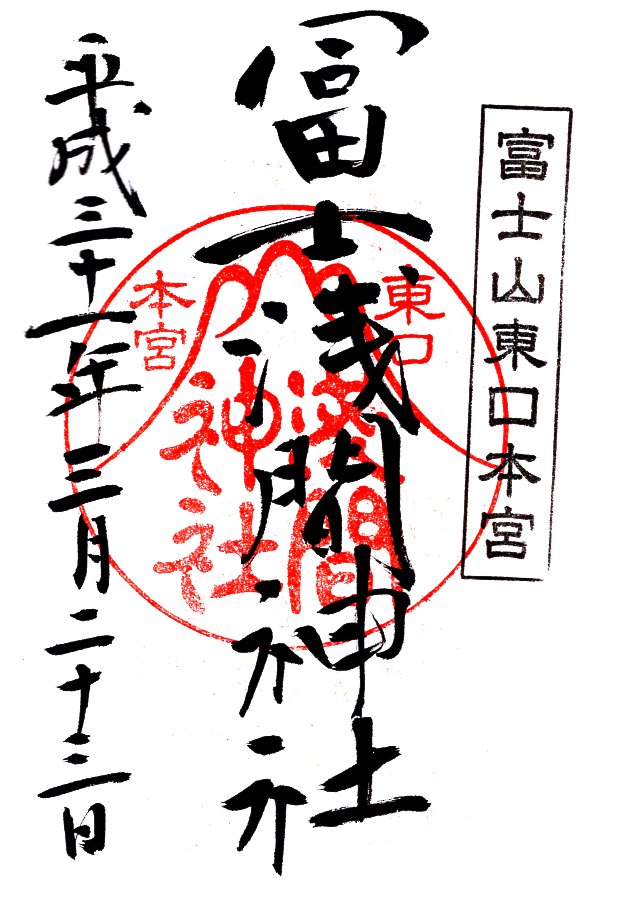 富士山東口本宮
冨士浅間神社
東口
本宮
浅間
神社
平成三十一年三月二十三日